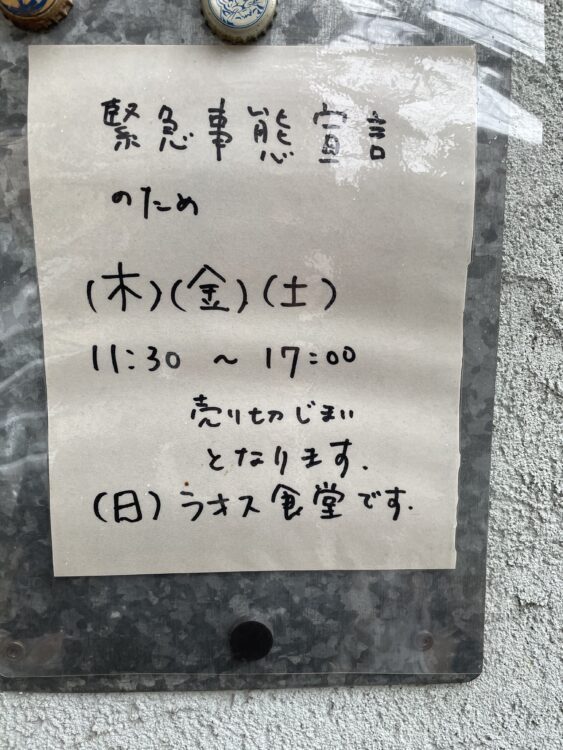 緊急事態宣言
のため
(木)(金)(土)
11:30 ～ 17:00
売り切じまい
となります.
(日) ラオス食堂です.